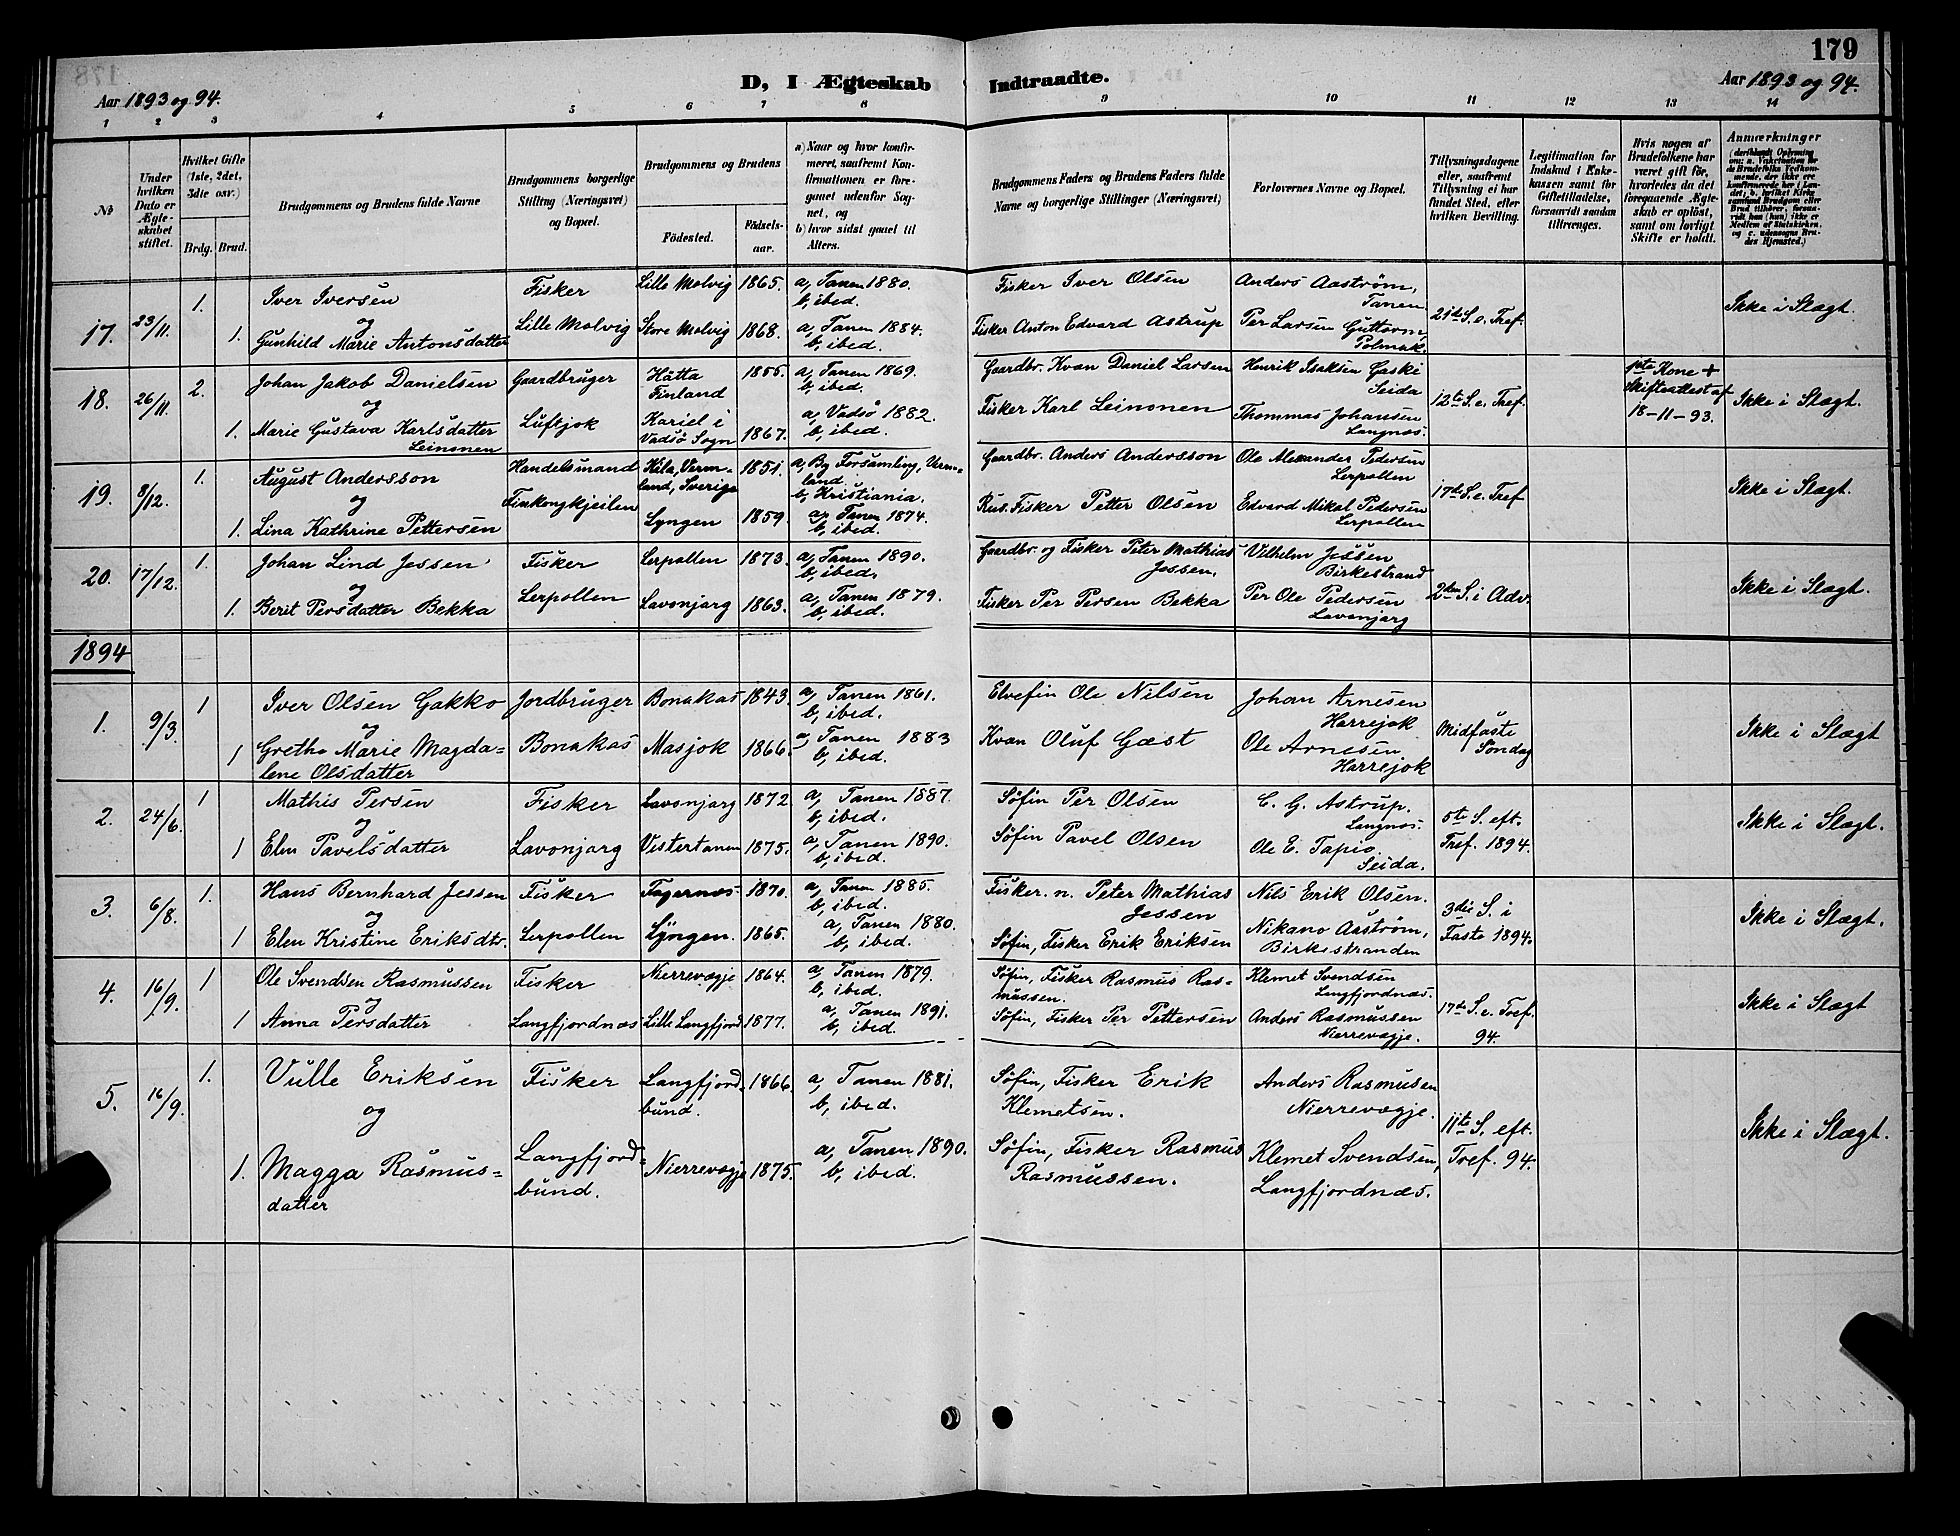 179
D, I Ægteskab Indtraadte.
Aar 1893 og 94.
Aar 1893 og 94.
1 2 3 4 5 6 7 8 9 10 11 12 13 14
№
Under hvilken Dato er Ægteskabet stiftet.
Hvilket Gifte (1ste, 2det, 3die osv.)
Brdg. Brud.
Brudgommens og Brudens fulde Navne
Brudgommens borgerlige Stilling (Næringsvei) og Bopæl.
Brudgommens og Brudens
Födested. Födselsaar.
a) Naar og hvor konfirmeret, saafremt Konfirmationen er foregaaet udenfor Sognet, og
b) hvor sidst gaaet til Alters.
Brudgommens Faders og Brudens Faders fulde Navne og borgerlige Stillinger (Næringsvei)
Forlovernes Navne og Bopæl.
Tillysningsdagene eller, saafremt Tillysning ei har fundet Sted, efter hvilken Bevilling.
Legitimation for Indskud i Enkekassen samt for Giftetilladelse, forsaavidt saadan tiltrænges.
Hvis nogen af Brudefolkene har været gift før, hvorledes da det foregaaende Ægteskab er opløst, samt om lovligt Skifte er holdt.
Anmærkninger
17. 23/11. 1. Iver Iversen Fisker Lille Molvig 1865. a, Tanen 1880. Fisker Iver Olsen Anders Aaström, 21de S. e. Tref. Ikke i Slægt.
og b, ibed. Tanen
1. Gunhild Marie Antonsdatter Lille Molvig Store Molvig 1868. a, Tanen 1884. Fisker Anton Edvard Astrup Per Larsen Guttorm,
b, ibed. Polmak.
18. 26/11. 2. Johan Jakob Danielsen Gaardbruger Hätta 1855. a, Tanen 1869. Gaardbr. Kvæn Daniel Larsen Henrik Isaksen Gaski 12te S. e. Tref. 1ste Kone + Ikke i Slægt.
og Finland b, ibed. Seida Skifteattest af
1. Marie Gustava Karlsdatter Luftjok Kariel i 1867. a, Vadsö 1882. Fisker Karl Leinonen Thommas Johansen 18-11-93.
Leinonen Vadsö Sogn b, ibed. Langnæs.
19. 8/12. 1. August Andersson Handelsmand Hila, Verm- 1851. a, By Forsamling, Verm- Gaardbr. Anders Andersson Ole Alexander Pedersen 17de S. e. Tref. Ikke i Slægt.
og Finkongkjeilen land, Sverige land Lerpollen
b, Kristiania.
1. Lina Kathrine Pettersen Lyngen 1859. a, Tanen 1874. Rus. Fisker Petter Olsen Edvard Mikal Pedersen
b, ibed. Lerpollen
20. 17/12. 1. Johan Lind Jessen Fisker Lerpollen 1873. a, Tanen 1890. Gaardbr. og Fisker Peter Mathias Vilhelm Jessen 2den S. i Adv. Ikke i Slægt.
og b, ibed. Jessen. Birkestrand
1. Berit Persdatter Bekka Lerpollen Lavonjarg 1863. a, Tanen 1879. Fisker Per Persen Bekka Per Ole Pedersen
b, ibed. Lavonjarg
1894
1. 9/3. 1 Iver Olsen Gakko Jordbruger Bonakas 1843. a, Tanen 1861. Elvefin Ole Nilsen Johan Arnesen Midfaste Ikke i Slægt
og b, ibed. Harrejok Söndag
1 Grethe Marie Magda- Bonakas Masjok 1866. a, Tanen 1883 Kvæn Oluf Gæst Ole Arnesen
lene Olsdatter b, ibed. Harrejok
2. 24/6. 1 Mathis Persen Fisker Lavonjarg 1872 a, Tanen 1887. Söfin Per Olsen C. G. Astrup. 5te S. eft. Ikke i Slægt.
og b, ibed. Langnæs. Tref. 1894.
1 Elen Pavelsdatter Lavonjarg Vestertanen 1875. a, Tanen 1890. Söfin Pavel Olsen Ole E. Tapio
b, ibed. Seida.
3. 6/8. 1. Hans Bernhard Jessen Fisker Fagernæs 1870. a, Tanen 1885. Fisker. n. Peter Mathias Nils Erik Olsen. 3die S. i Ikke i Slægt.
og b, ibed. Jessen Faste 1894.
1 Elen Kristine Eriksdtr. Lerpollen Lyngen. 1865. a, Tanen 1880. Söfin, Fisker Erik Eriksen Nikano Aaström,
b, ibed. Birkestranden
4. 16/9. 1 Ole Svendsen Rasmussen Fisker Nierrevægje 1864. a, Tanen 1879. Söfin, Fisker Rasmus Ras- Klemet Svendsen 17de S. e. Tref. Ikke i Slægt
og b, ibed. mussen. Langfjordnæs. 94.
1 Anna Persdatter Langfjordnæs Lille Langfjord 1877. a, Tanen 1891. Söfin, Fisker Per Pettersen Anders Rasmussen
b, ibed Nierrevægje.
5. 16/9. 1. Vulle Eriksen Fisker Langfjord- 1866. a, Tanen 1881. Söfin, Fisker Erik Anders Rasmusen 11te S. eft. Ikke i Slægt.
og bund. b, ibed. Klemetsen. Nierrevægje. Tref. 94.
1. Magga Rasmus- Langfjord- Nierrevægje 1875. a, Tanen 1890. Söfin, Fisker Rasmus Klemet Svendsen,
datter bund. b, ibed. Rasmussen. Langfjordnæs.